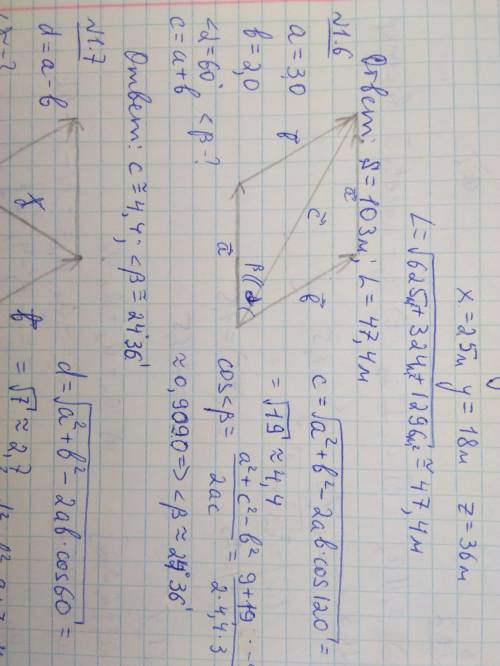 x = 25м y = 18м z = 36м
L = √625м² + 324м² + 1296м² ≈ 47,4м
Ответ: S = 103м; L = 47,4м
№1.6
a = 3,0
b = 2,0
<α = 60° <β - ?
c = a + b
a⃗
b⃗
c⃗
a⃗
b⃗
β
α
c = √a² + b² - 2ab · cos120° =
= √19 ≈ 4,4
cos<β = a² + c² - b² / 2ac = 9 + 19 / 2·4,4·3
≈ 0,9090 => <β ≈ 24°36'
Ответ: c ≈ 4,4; <β ≈ 24°36'
№1.7
d = a - b
d = √a² + b² - 2ab · cos60° =
= √7 ≈ 2,7